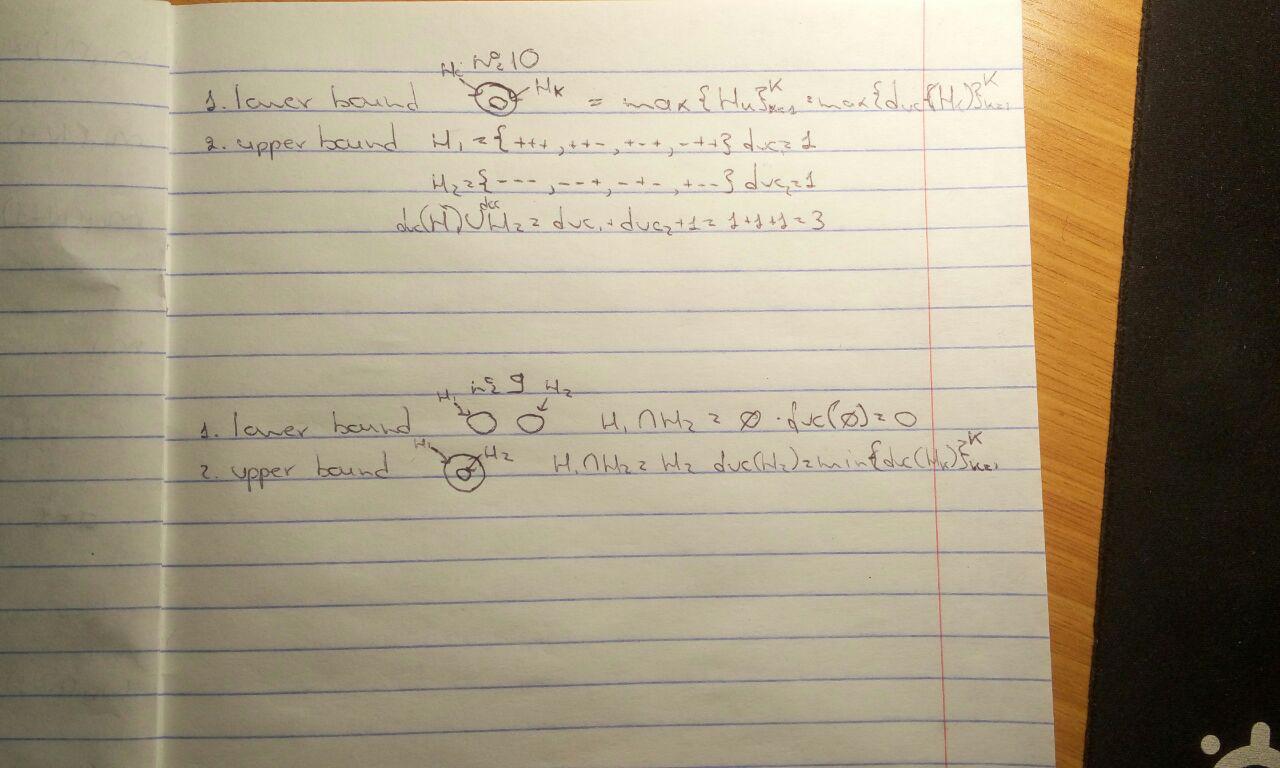 №10
H₁ Hₖ
1. lower bound = max{Hₖ}ᴷₖ₌₁ = max{dvc(Hₖ)}ᴷₖ₌₁
2. upper bound H₁ = {+++, ++-, +-+, -++} dvc = 1
H₂ = {---, --+, -+-, +--} dvc₂ = 1
dvc(H₁) ∪ H₂ = dvc₁ + dvc₂ + 1 = 1+1+1 = 3
№ 9
H₁ H₂
1. lower bound H₁ ∩ H₂ = ∅ · dvc(∅) = 0
H₁ H₂
2. upper bound H₁ ∩ H₂ = H₂ dvc(H₂) = min{dvc(Hₖ)}ᴷₖ₌₁